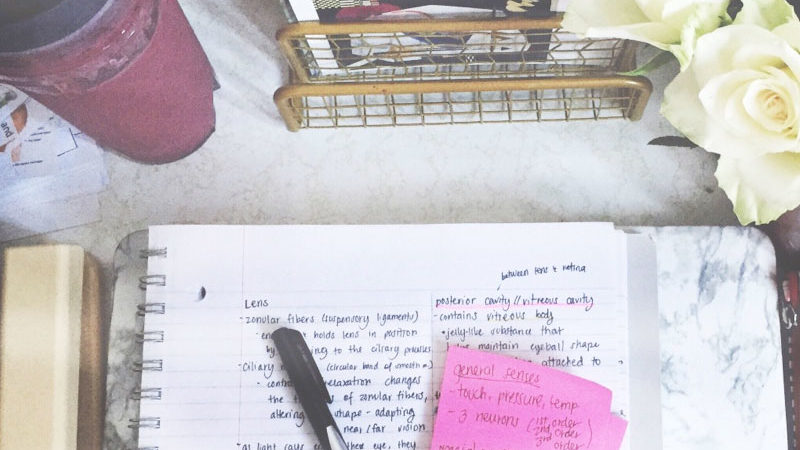 Lens
- zonular fibers (suspensory ligaments)
holds lens in position
by to the ciliary processes
- Ciliary (circular band of smooth m
- relaxation changes
the of zonular fibers,
altering shape - adapting
near/far vision
- as light rays the eye, they
between lens & retina
posterior cavity // vitreous cavity
- contains vitreous body
• jelly-like substance that
maintain eyeball shape
attached to
general senses
- touch, pressure, temp
- 3 neurons (1st order
2nd order
3rd order